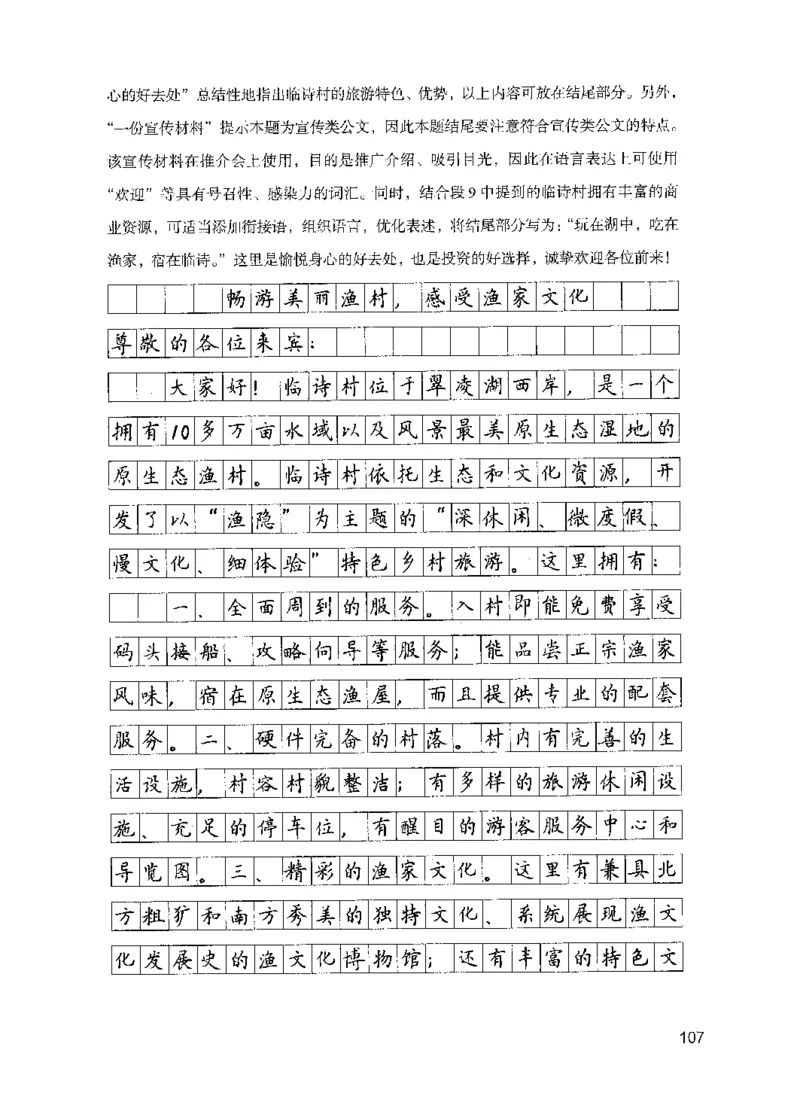 心的好去处”总结性地指出临诗村的旅游特色、优势，以上内容可放在结尾部分。另外，
“一份宣传材料”提示本题为宣传类公文，因此本题结尾要注意符合宣传类公文的特点。
该宣传材料在推介会上使用，目的是推广介绍、吸引目光，因此在语言表达上可使用
“欢迎”等具有号召性、感染力的词汇。同时，结合段9中提到的临诗村拥有丰富的商
业资源，可适当添加衔接语，组织语言，优化表述，将结尾部分写为：“玩在湖中，吃在
渔家，宿在临诗。”这里是愉悦身心的好去处，也是投资的好选择，诚挚欢迎各位前来！
畅游美丽渔村，感受渔家文化
尊敬的各位来宾：
大家好！临诗村位于翠凌湖西岸，是一个
拥有10多万亩水域以及风景最美原生态湿地的
原生态渔村。临诗村依托生态和文化资源，开
发了以“渔隐”为主题的“深休闲、微度假、
慢文化、细体验”特色乡村旅游。这里拥有：
一、全面周到的服务。入村即能免费享受
码头接船、攻略向导等服务；能品尝正宗渔家
风味，宿在原生态渔屋，而且提供专业的配套
服务。二、硬件完备的村落。村内有完善的生
活设施，村容村貌整洁；有多样的旅游休闲设
施、充足的停车位，有醒目的游客服务中心和
导览图。三、精彩的渔家文化。这里有兼具北
方粗犷和南方秀美的独特文化、系统展现渔文
化发展史的渔文化博物馆；还有丰富的特色文
107